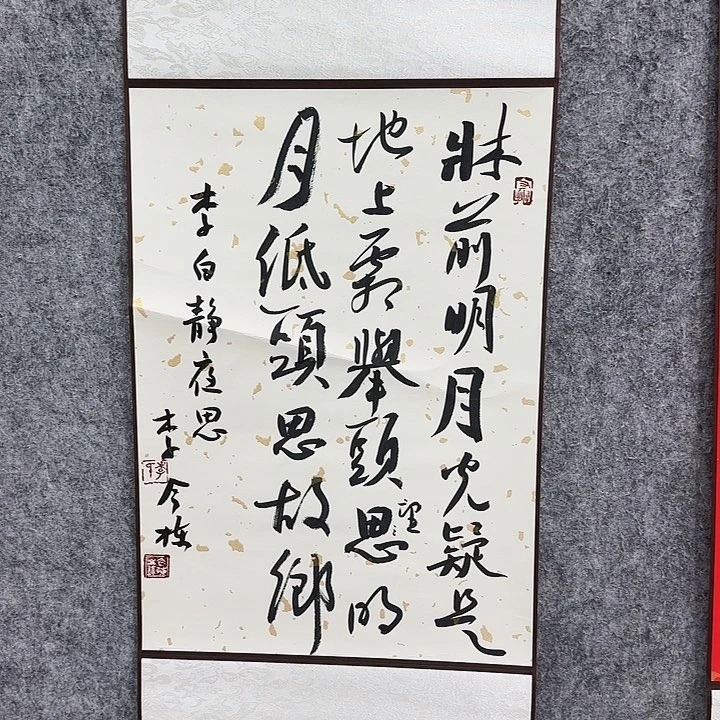 牀前明月光疑是
地上霜舉頭思明
望
月低頭思故鄉
李白静夜思
李